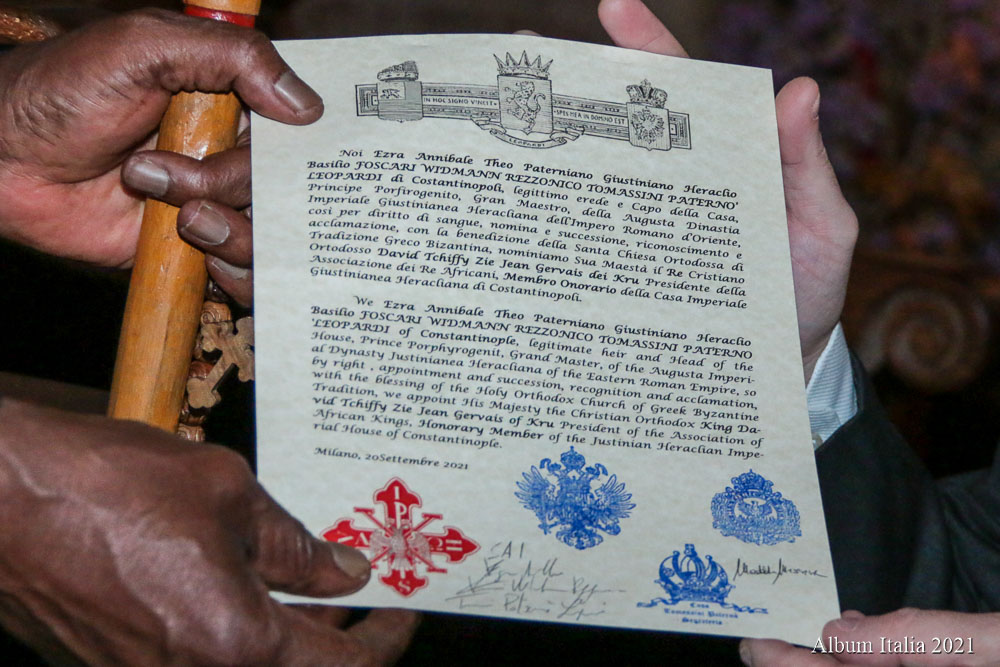 IN HOC SIGNO VINCIT
SPES MEA IN DOMINO EST
LEOPARDI
Noi Ezra Annibale Theo Paterniano Giustiniano Heraclio
Basilio FOSCARI WIDMANN REZZONICO TOMASSINI PATERNO'
LEOPARDI di Costantinopoli, legittimo erede e Capo della Casa,
Principe Porfirogenito, Gran Maestro, della Augusta Dinastia
Imperiale Giustinianea Heracliana dell'Impero Romano d'Oriente,
così per diritto di sangue, nomina e successione, riconoscimento e
acclamazione, con la benedizione della Santa Chiesa Ortodossa di
Tradizione Greco Bizantina, nominiamo Sua Maestà il Re Cristiano
Ortodosso David Tchiffy Zie Jean Gervais dei Kru Presidente della
Associazione dei Re Africani, Membro Onorario della Casa Imperiale
Giustinianea Heracliana di Costantinopoli.
We Ezra Annibale Theo Paterniano Giustiniano Heraclio
Basilio FOSCARI WIDMANN REZZONICO TOMASSINI PATERNO
'LEOPARDI of Constantinople, legitimate heir and Head of the
House, Prince Porphyrogenit, Grand Master, of the Augusta Imperi-
al Dynasty Justinianea Heracliana of the Eastern Roman Empire, so
by right , appointment and succession, recognition and acclamation,
with the blessing of the Holy Orthodox Church of Greek Byzantine
Tradition, we appoint His Majesty the Christian Orthodox King Da-
vid Tchiffy Zie Jean Gervais of Kru President of the Association of
African Kings, Honorary Member of the Justinian Heraclian Impe-
rial House of Constantinople.
Milano, 20Settembre 2021
Casa
Tomassini Paterno
Segreteria
Album Italia 2021